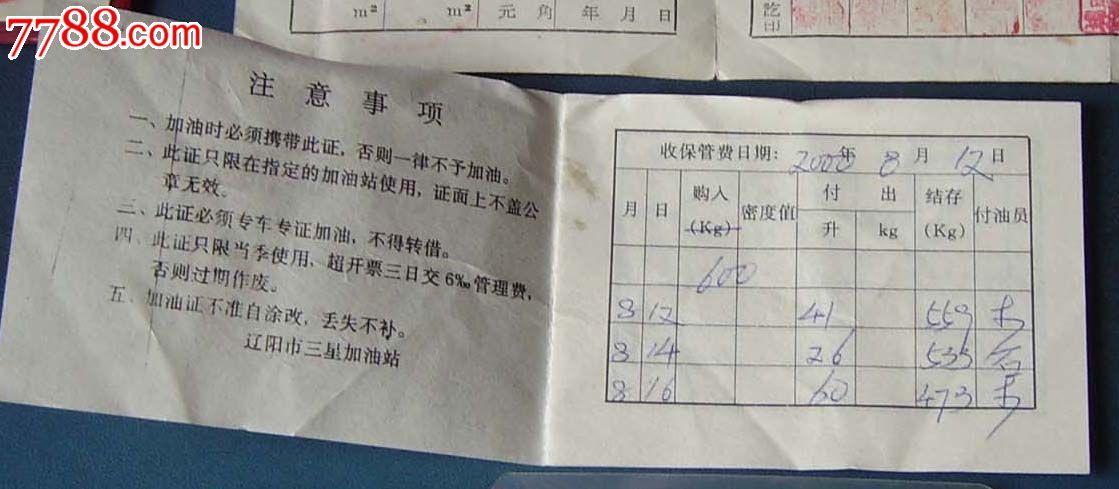 7788.com
m²
m²
元 角
年 月 日
讫
印
注 意 事 项
一、加油时必须携带此证，否则一律不予加油。
二、此证只限在指定的加油站使用，证面上不盖公
章无效。
三、此证必须专车专证加油，不得转借。
四、此证只限当季使用，超开票三日交6‰管理费，
否则过期作废。
五、加油证不准自涂改，丢失不补。
辽阳市三星加油站
收保管费日期：2000年 8 月 12 日
月 日 购入(Kg) 密度值 付 出 结存(Kg) 付油员
升 kg
600
8 12 41 559
8 14 26 533
8 16 60 473